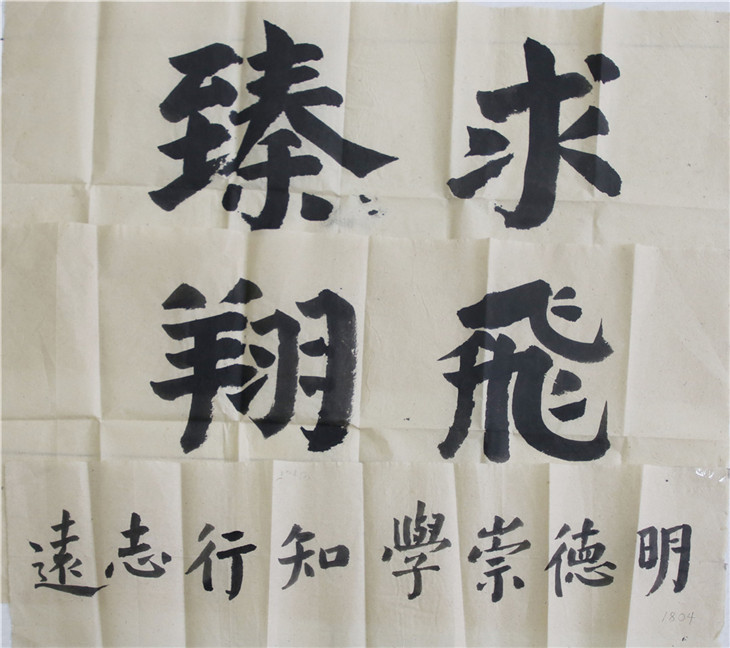 求臻
飛翔
明德崇學知行志遠
1804